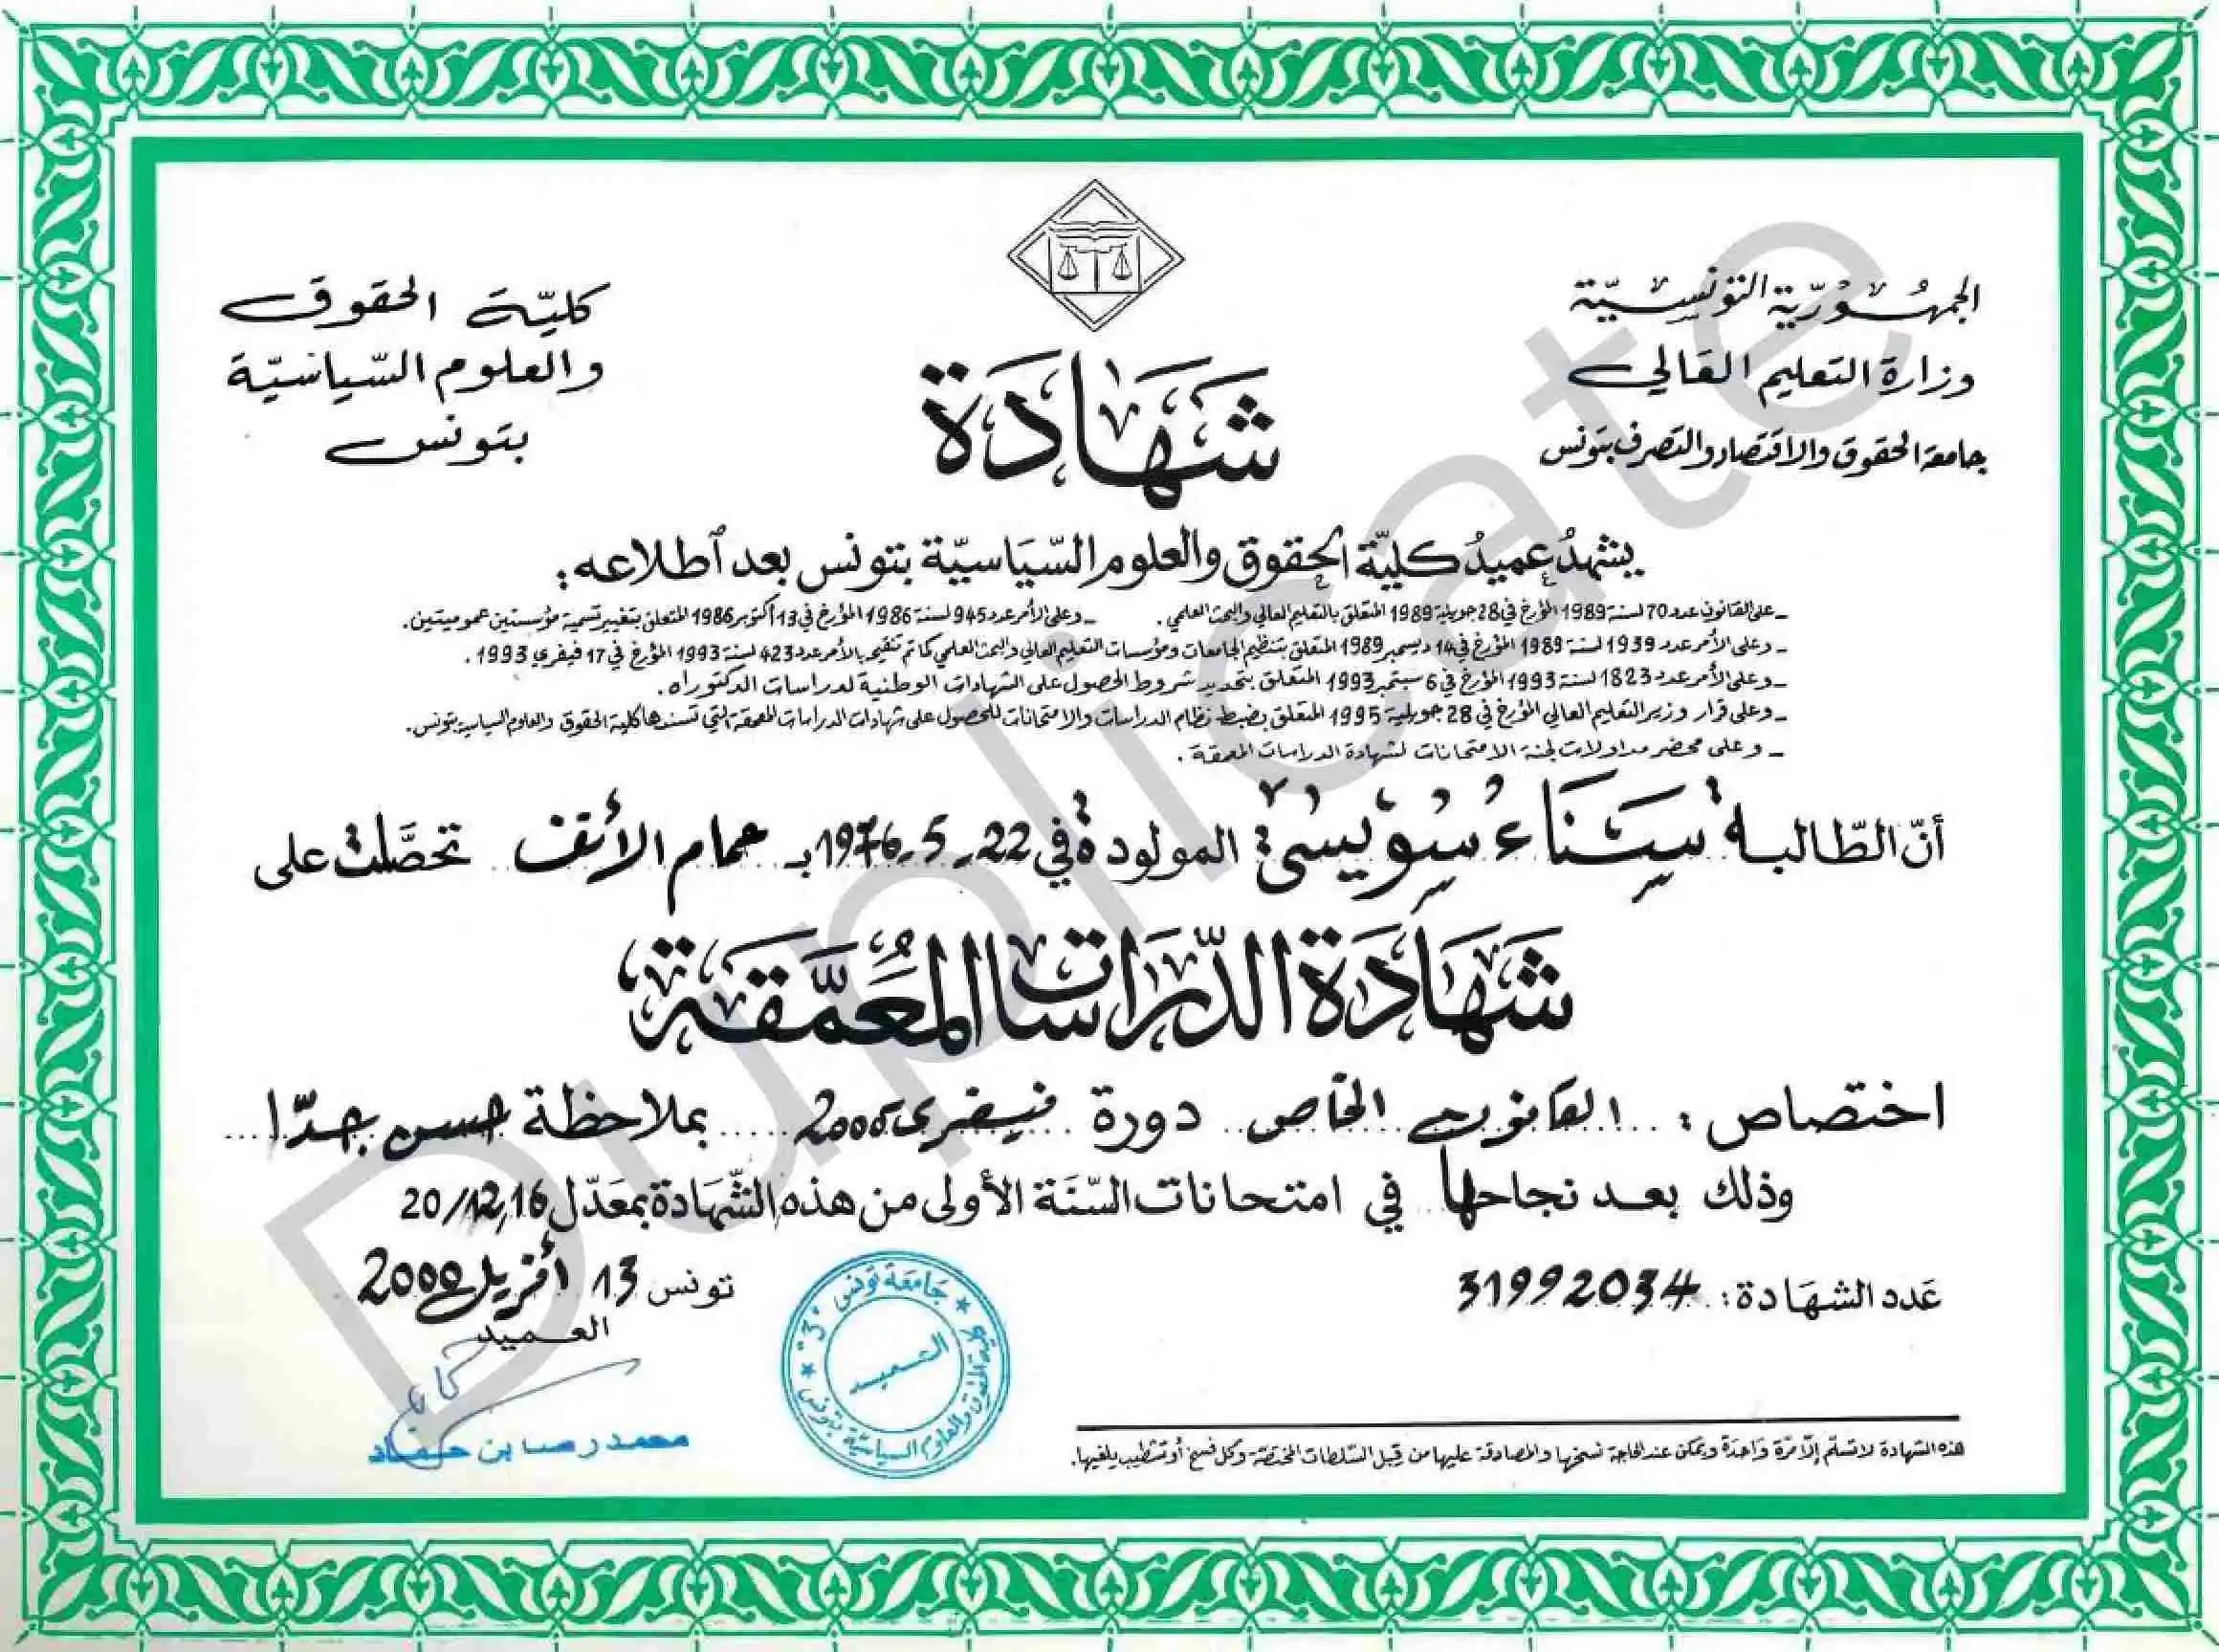 الجمهورية التونسية
وزارة التعليم العالي
جامعة الحقوق والاقتصاد والتصرف بتونس
كليّة الحقوق
والعلوم السّياسيّة
بتونس
شهَادَة
يشهدُ عميدُ كليّة الحقوق والعلوم السّيَاسيّة بتونس بعد اطلاعه :
ـ على القانون عدد 70 لسنة 1989 المؤرخ في 28 جويلية 1989 المتعلق بالتعليم العالي والبحث العلمي . ـ وعلى الأمر عدد 945 لسنة 1986 المؤرخ في 13 أكتوبر 1986 المتعلق بتغيير تسمية مؤسستين عموميتين .
ـ وعلى الأمر عدد 1939 لسنة 1989 المؤرخ في 14 ديسمبر 1989 المتعلق بتنظيم الجامعات ومؤسسات التعليم العالي والبحث العلمي كما تم تنقيحه بالأمر عدد 423 لسنة 1993 المؤرخ في 17 فيفري 1993 .
ـ وعلى الأمر عدد 1823 لسنة 1993 المؤرخ في 6 سبتمبر 1993 المتعلق بتحديد شروط الحصول على الشهادات الوطنية لدراسات الدكتوراه .
ـ وعلى قرار وزير التعليم العالي المؤرخ في 28 جويلية 1995 المتعلق بضبط نظام الدراسات والامتحانات للحصول على شهادات الدراسات المعمقة التي تسندها كلية الحقوق والعلوم السياسية بتونس .
ـ وعلى محضر مداولات لجنة الامتحانات لشهادة الدراسات المعمقة .
أنّ الطّالبة سَنَاء سُوَيسي المولودة في 22ـ5ـ1976 بـ حمام الأنف تحصَّلت على
شهَادَة الدّرَاسَات المُعَمَّقَة،
اختصاص : القانون الخاص دورة فيفري 2000 بملاحظة حسن جدّا
وذلك بعد نجاحها في امتحانات السّنَة الأولى من هذه الشّهَادة بمعَدّل 12,16/20
عَدد الشهَادة : 31992034
تونس 13 أفريل 2000
العميد
محمد رضا بن حماد
جامعة تونس "3" * كلية الحقوق والعلوم السياسيّة بتونس *
العميد
هذه الشهادة لا تسلّم إلاّ مرّة وَاحدَة ويمكن عند الحاجة نسخها والمصادقة عليها من قبل السّلطات المختصّة وكل فسخ أو تشطيب يلغيها .
Duplicate